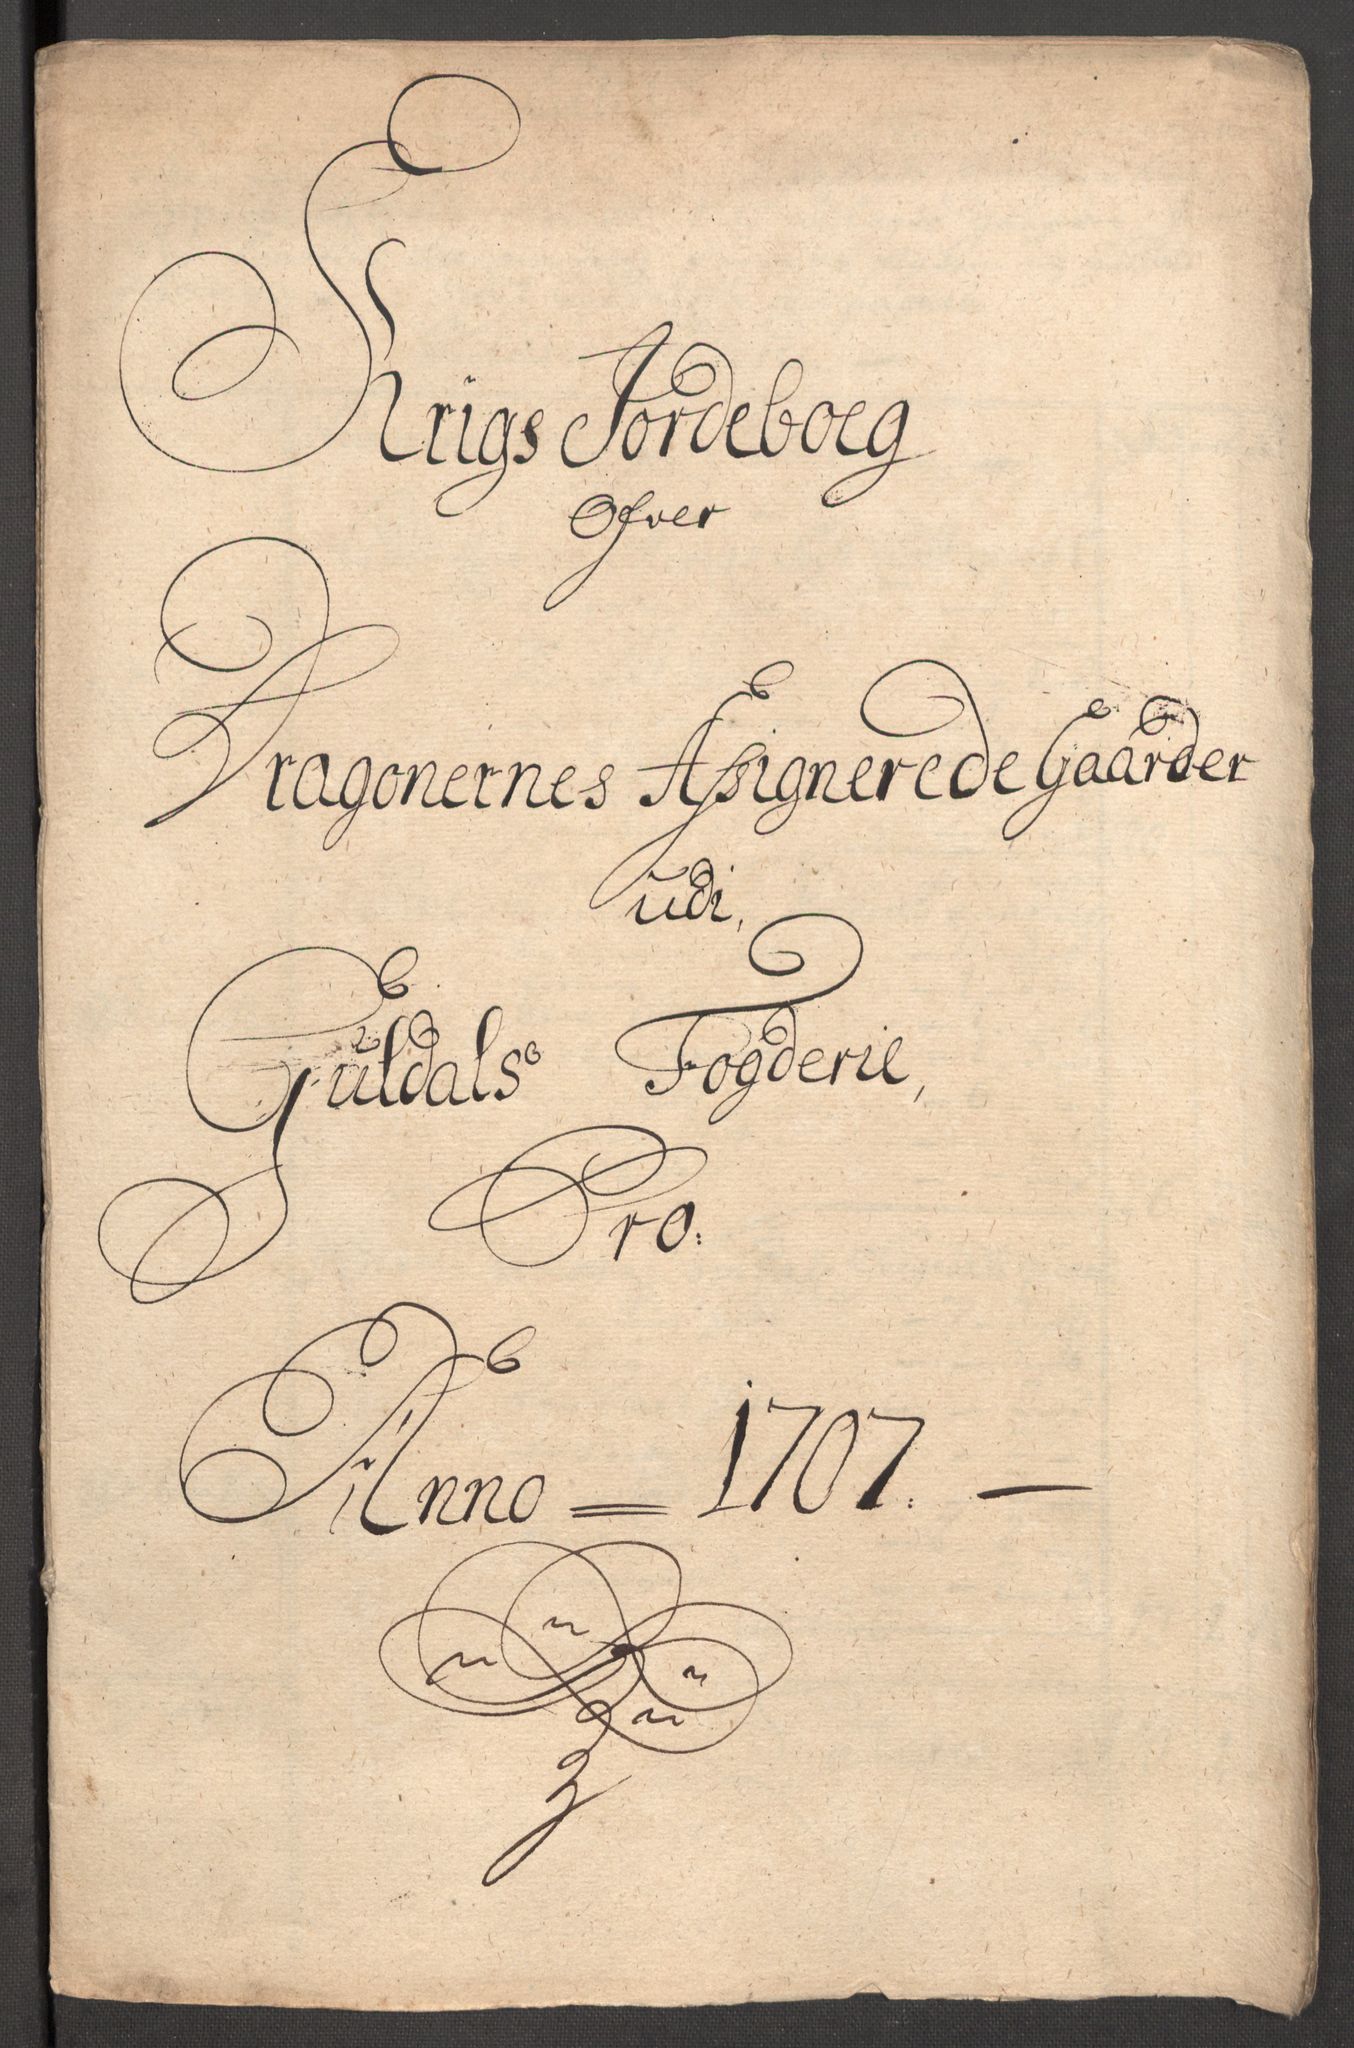 Krigs Jordeboeg
Ofver
Dragonernes Assignerede Gaarder
udi,
Guldals Fogderie,
Pro:
Anno = 1707. —